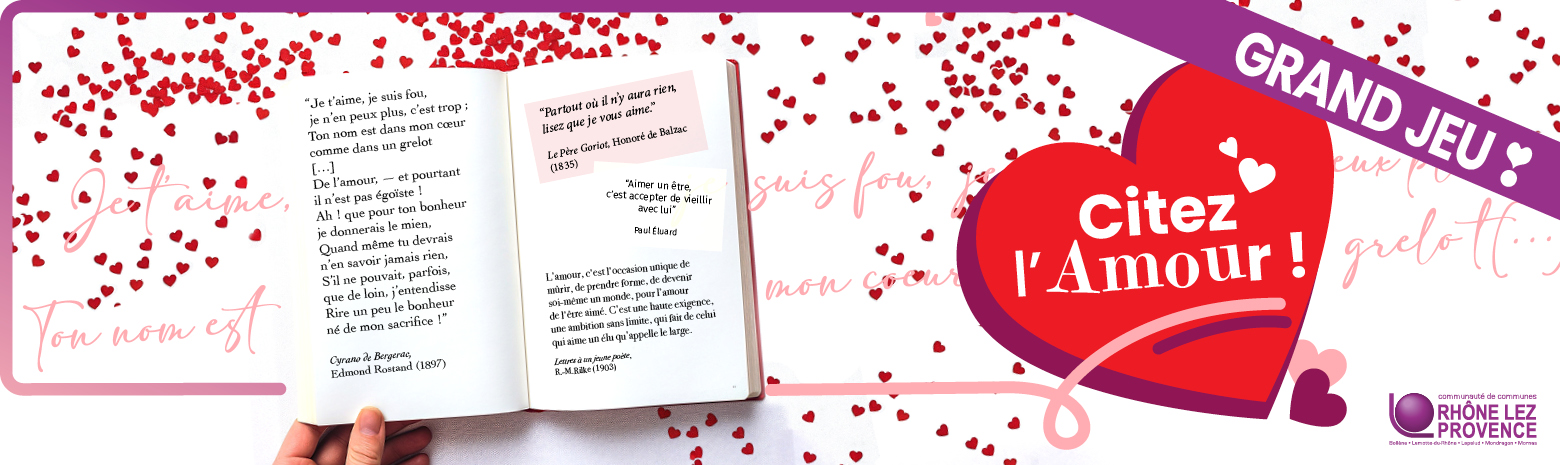 GRAND JEU !
“Je t’aime, je suis fou,
je n’en peux plus, c’est trop ;
Ton nom est dans mon cœur
comme dans un grelot
[...]
De l’amour, — et pourtant
il n’est pas égoïste !
Ah ! que pour ton bonheur
je donnerais le mien,
Quand même tu devrais
n’en savoir jamais rien,
S’il ne pouvait, parfois,
que de loin, j’entendisse
Rire un peu le bonheur
né de mon sacrifice !”
Cyrano de Bergerac,
Edmond Rostand (1897)
“Partout où il n’y aura rien,
lisez que je vous aime.”
Le Père Goriot, Honoré de Balzac
(1835)
“Aimer un être,
c’est accepter de vieillir
avec lui”
Paul Éluard
L’amour, c’est l’occasion unique de
mûrir, de prendre forme, de devenir
soi-même un monde, pour l’amour
de l’être aimé. C’est une haute exigence,
une ambition sans limite, qui fait de celui
qui aime un élu qu’appelle le large.
Lettres à un jeune poète,
R.-M.Rilke (1903)
Je t'aime, suis fou, je eux pl
Ton nom est mon coeur grelott(...)
Citez
l’Amour !
communauté de communes
RHÔNE LEZ
PROVENCE
Bollène • Lamotte-du-Rhône • Lapalud • Mondragon • Mornas